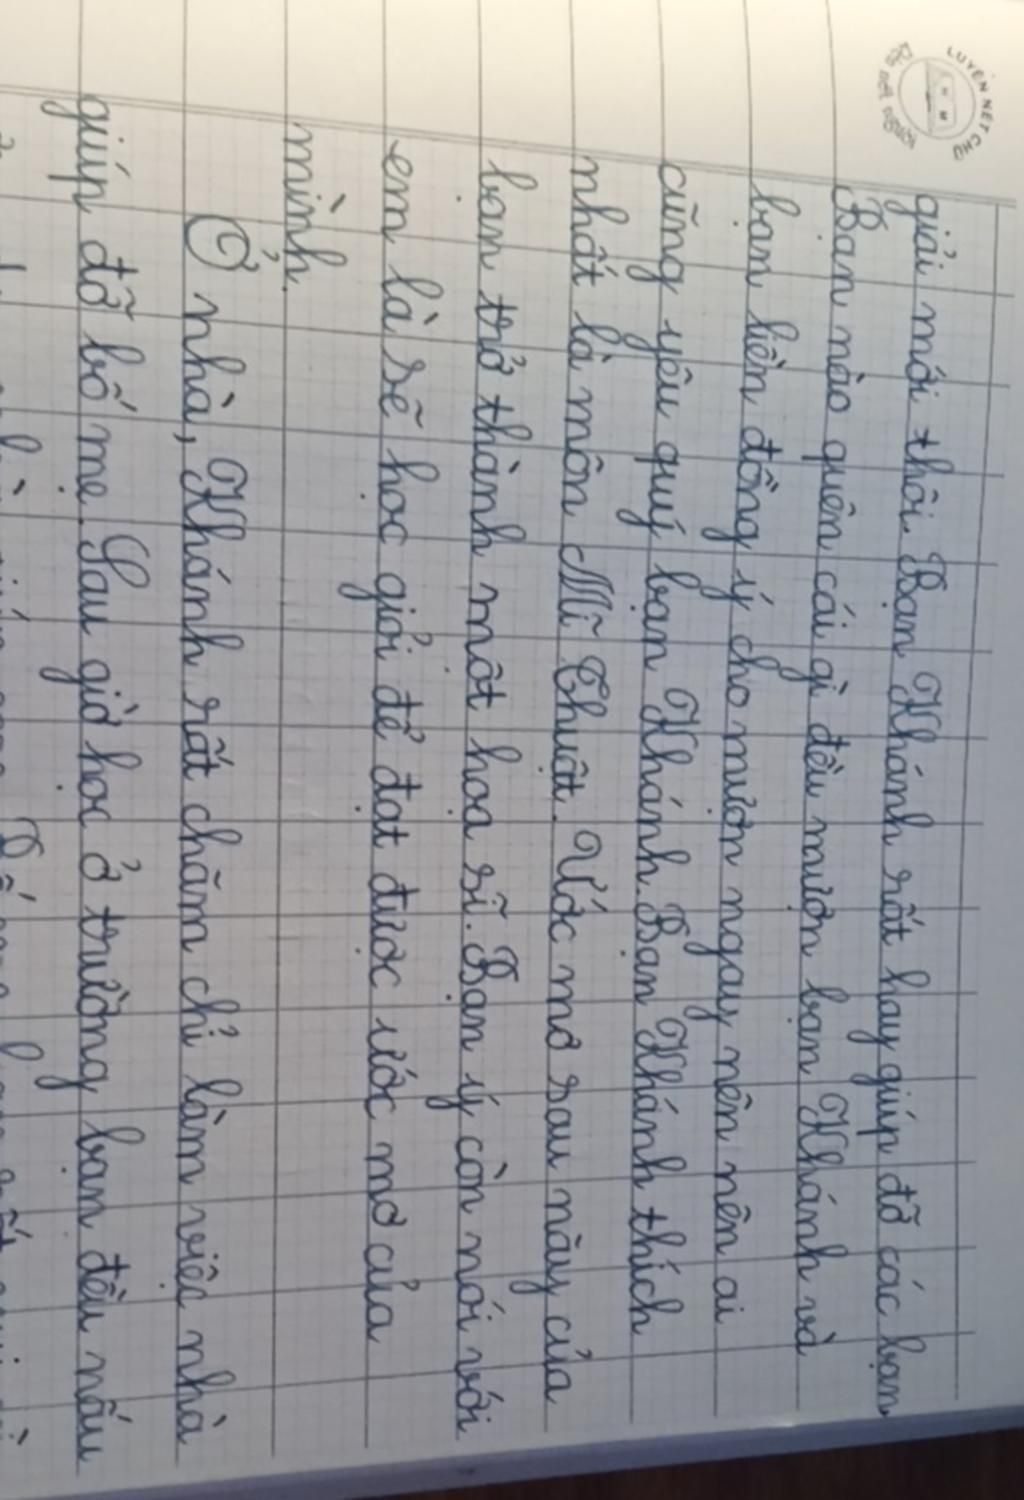 LUYỆN NÉT CHỮ
giải mới thôi. Bạn Khánh rất hay giúp đỡ các bạn
Bạn nào quên cái gì đều mượn bạn Khánh và
bạn liền đồng ý cho mượn ngay nên nên ai
cũng yêu quý bạn Khánh. Bạn Khánh thích
nhất là môn Mĩ Thuật. Ước mơ sau này của
bạn trở thành một họa sĩ. Bạn ý còn nói với
em là sẽ học giỏi để đạt được ước mơ của
mình.
Ở nhà, Khánh rất chăm chỉ làm việc nhà
giúp đỡ bố mẹ. Sau giờ học ở trường bạn đều nấu